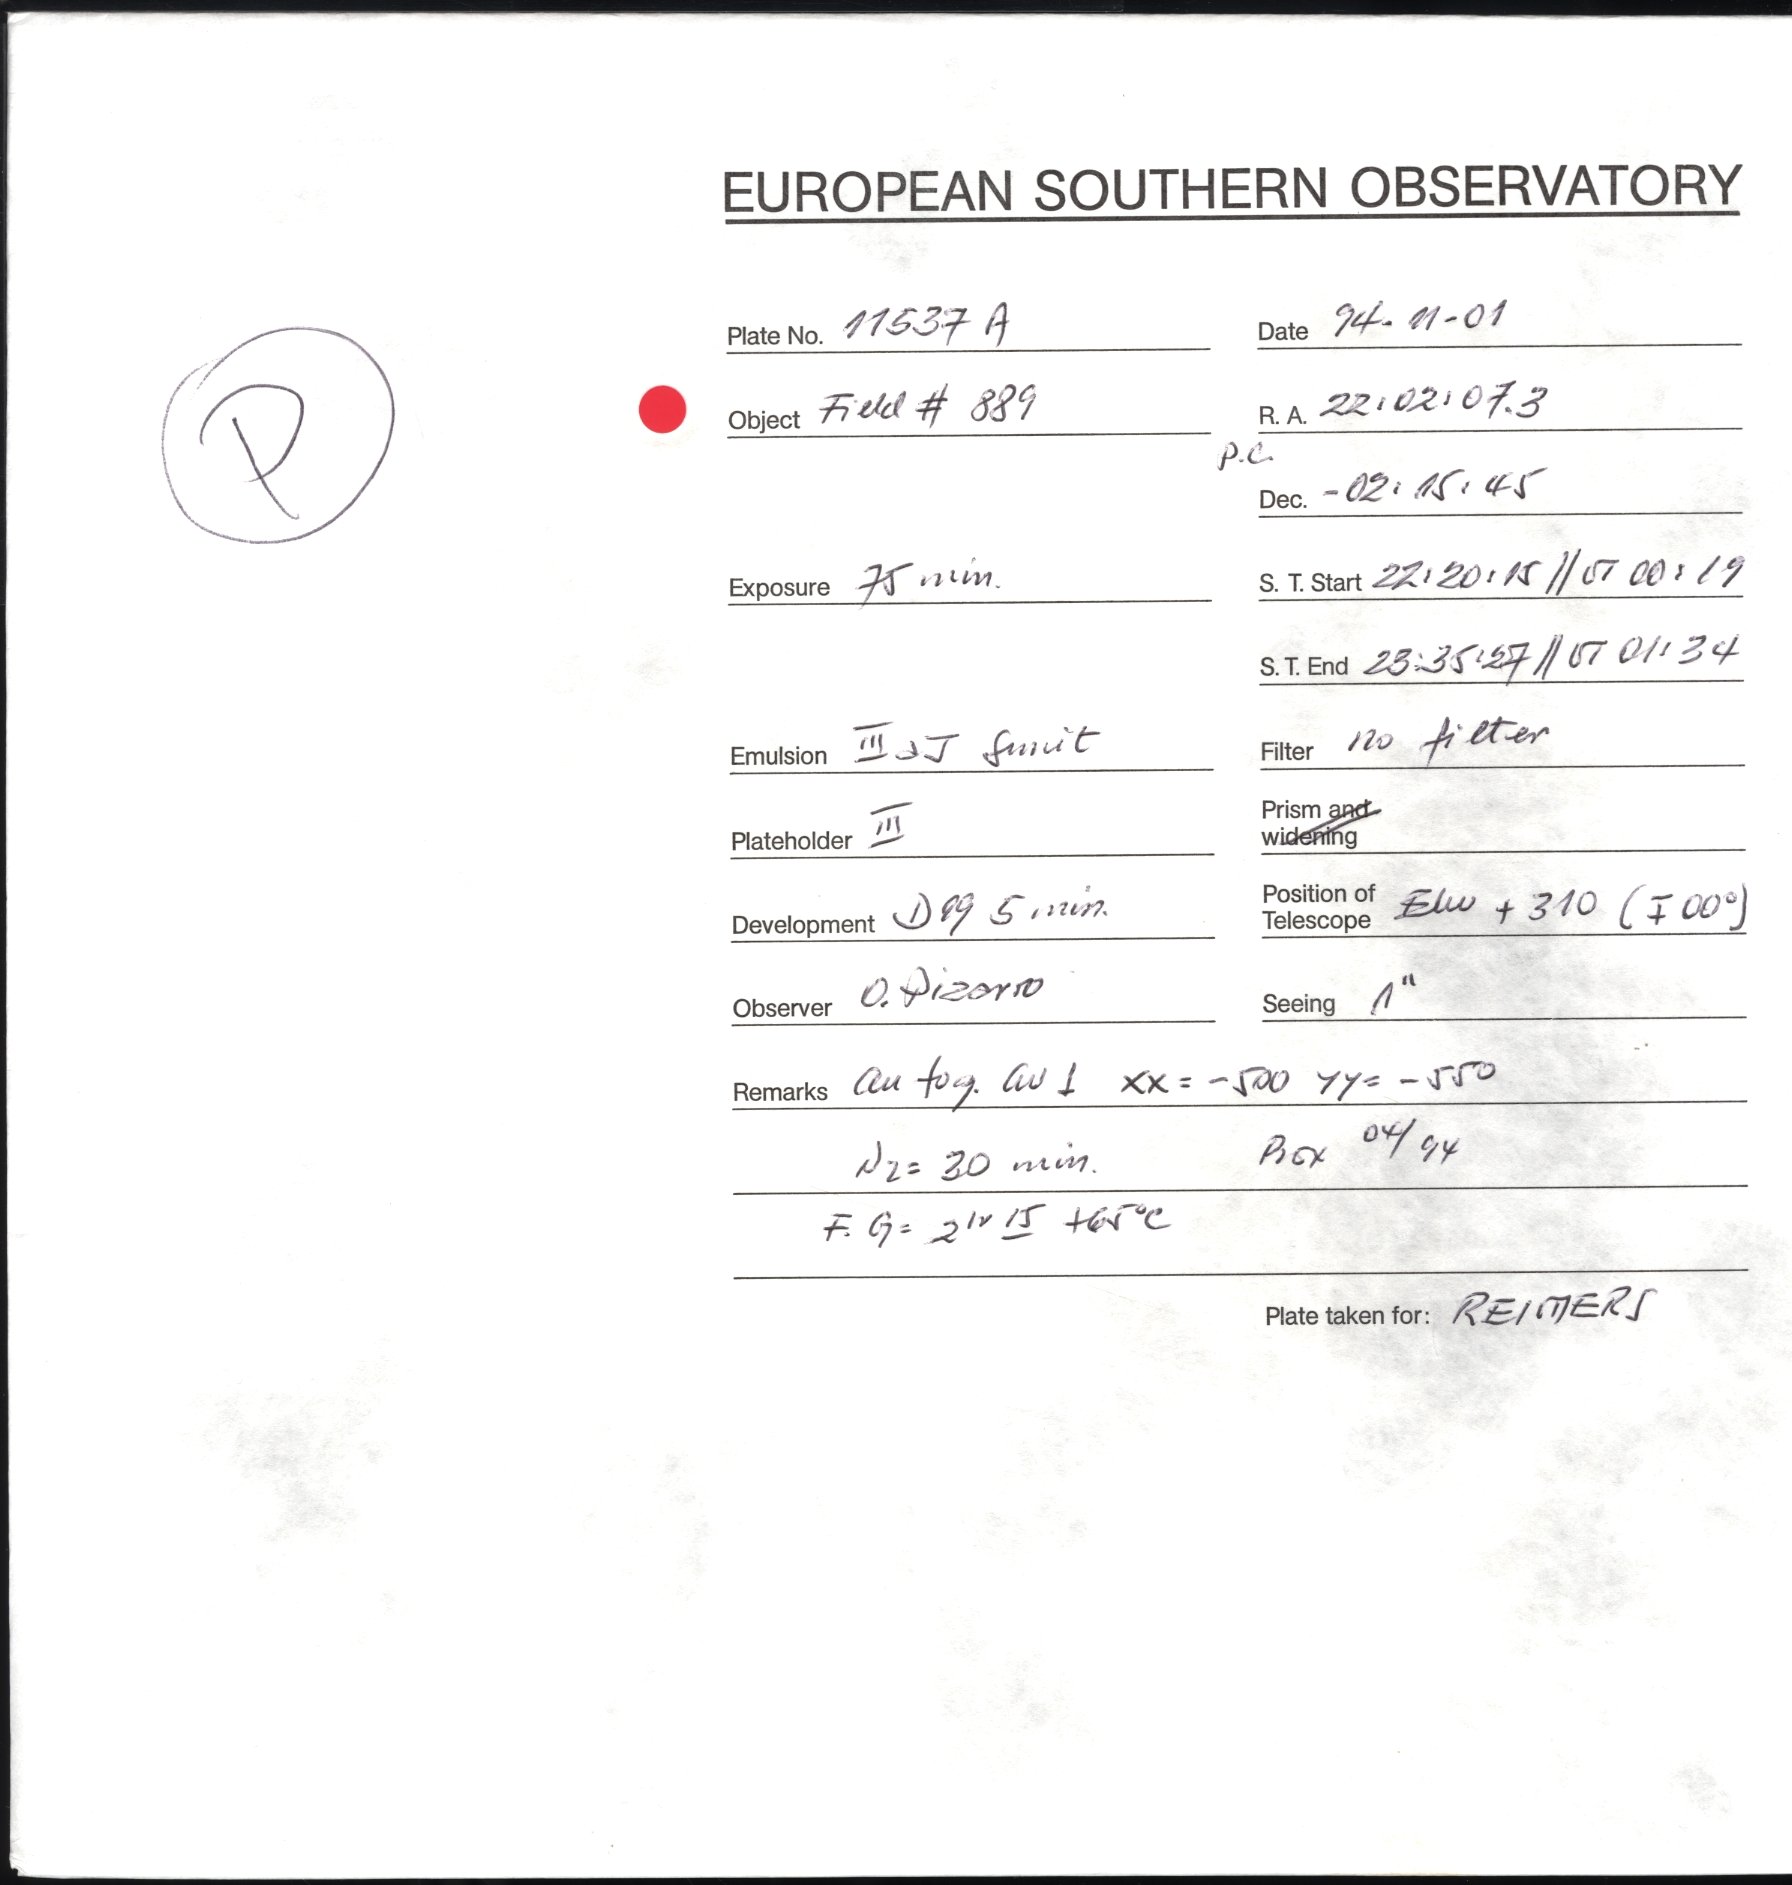 EUROPEAN SOUTHERN OBSERVATORY
Plate No. 11537 A
Date 94-11-01
P
Object Field # 889
R. A. 22:02:07.3
P.C.
Dec. -02:15:45
Exposure 75 min.
S. T. Start 22:20:15 // UT 00:19
S. T. End 23:35:27 // UT 01:34
Emulsion III aJ
Filter no filter
Plateholder III
Prism and widening
Development D19 5 min.
Position of Telescope + 310 (I 00°)
Observer O. Pizarro
Seeing 1"
Remarks xx = -500 yy = -550
N2 = 30 min.
Box 04/94
F. G = +65°C
Plate taken for: REIMERS